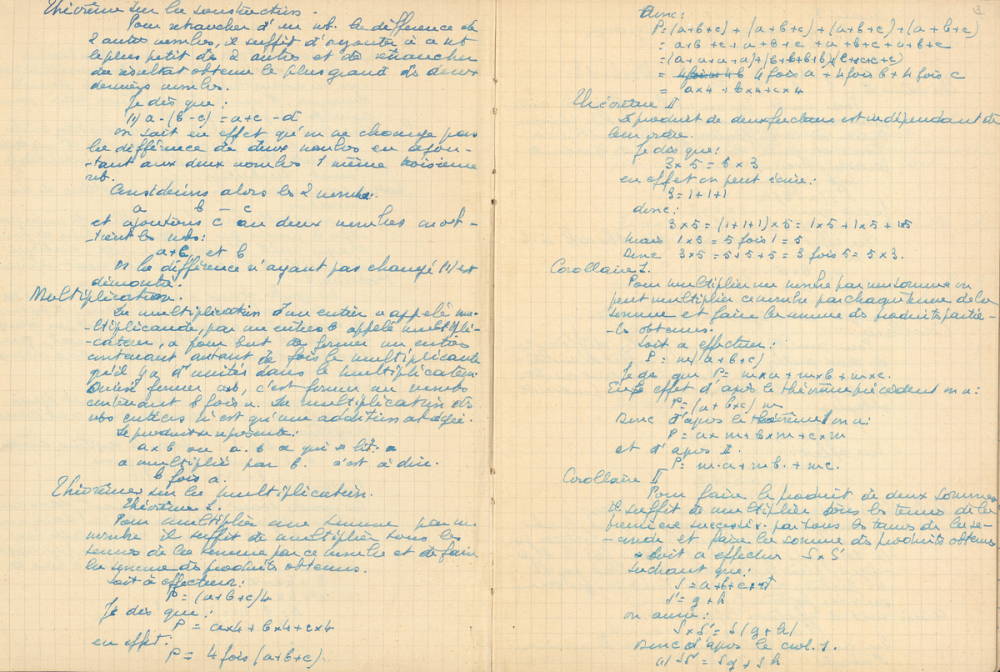 Théorème sur la soustraction.
Pour retrancher d'un nb. la différence de
2 autres nombres, il suffit d'ajouter à ce nb
le plus petit des 2 autres et de retrancher
du résultat obtenu le plus grand des deux
derniers nombres.
Je dis que :
(1) a - (b - c) = a + c - b
on sait en effet qu'on ne change pas
la différence de deux nombres en ajou-
-tant aux deux nombres 1 même troisième
nb.
Considérons alors les 2 nombres.
a b - c
et ajoutons c aux deux nombres on ob-
-tient les nbs:
a+c, et b
or la différence n'ayant pas changé (1) est
démontré.
Multiplication.
La multiplication d'un entier a appelé mu-
-ltiplicande, par un entier b appelé multipli-
-cateur, a pour but de former un entier
contenant autant de fois le multiplicande
qu'il y a d'unités dans le multiplicateur.
Ainsi former axb, c'est former un nombre
contenant b fois a. La multiplication des
nbs entiers n'est qu'une addition abrégée.
Le produit se représente:
a x b ou a. b ce qui se lit: a
a multiplié par b. c'est à dire.
b fois a.
Théorèmes sur la multiplication.
Théorème I.
Pour multiplier une somme par un
nombre il suffit de multiplier tous les
termes de la somme par ce nombre et de faire
la somme des produits obtenus.
Soit à effectuer:
P = (a+b+c)4
Je dis que :
P = ax4 + bx4 + cx4
en effet.
P = 4 fois (a+b+c).
donc:
P = (a+b+c) + (a+b+c) + (a+b+c) + (a+b+c)
= a+b+c+a+b+c+a+b+c+a+b+c
= (a+a+a+a)+(b+b+b+b)+(c+c+c+c)
= 4 fois a + 4 fois b + 4 fois c
= ax4 + bx4 + cx4
Théorème II
Le produit de deux facteurs est indépendant de
leur ordre.
Je dis que:
3 x 5 = 5 x 3
en effet on peut écrire:
3 = 1+1+1
donc:
3x5 = (1+1+1) x 5 = 1x5 + 1x5 + 1x5
Mais 1x5 = 5 fois 1 = 5
Donc 3x5 = 5+5+5 = 3 fois 5 = 5x3.
Corollaire I.
Pour multiplier un nombre par une somme on
peut multiplier ce nombre par chaque terme de la
somme et faire la somme des produits partie-
-ls obtenus.
Soit à effectuer:
P = m(a+b+c)
Je dis que P = mxa + mxb + mxc.
En effet d'après le théorème précédent on a:
P = (a+b+c) m
Donc d'après le théorème I on a:
P = axm + bxm + cxm
et d'après II.
P = m.a + mb. + mc.
Corollaire II
Pour faire le produit de deux sommes
il suffit de multiplier tous les termes de la
première successiv. par tous les termes de la se-
-conde et faire la somme des produits obtenus
Soit à effectuer S x S'
Sachant que:
S = a+b+c+d
S' = g + h
on aura:
S x S' = S (g + h)
Donc d'après le corol. 1.
(1) SS' = Sg + Sh